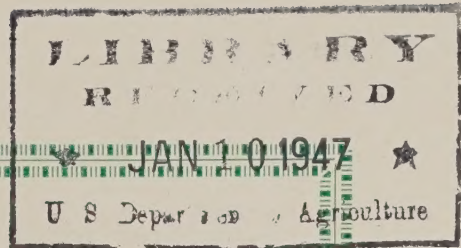 LIBRARY
RECEIVED
★ JAN 10 1947 ★
U S Department of Agriculture